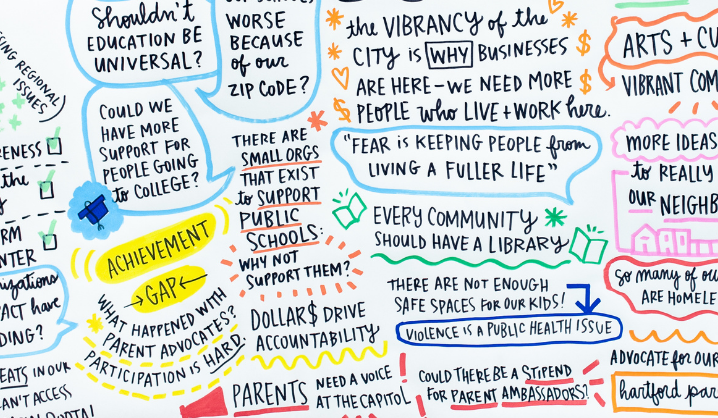 Shouldn't
EDUCATION BE
UNIVERSAL?
WORSE
BECAUSE
of our
ZIP CODE?
the VIBRANCY of the
CITY is WHY BUSINESSES
ARE HERE – WE NEED MORE
PEOPLE who LIVE + WORK here.
ARTS + CU
VIBRANT COM
REGIONAL
ISSUES
COULD WE
HAVE MORE
SUPPORT FOR
PEOPLE GOING
to COLLEGE?
THERE ARE
SMALL ORGS
THAT EXIST
to SUPPORT
PUBLIC
SCHOOLS:
WHY NOT
SUPPORT THEM?
"FEAR is KEEPING PEOPLE from
LIVING A FULLER LIFE"
MORE IDEAS
to REALLY
OUR NEIGHB
RENESS
the
RM
NTER
ACHIEVEMENT
→GAP←
WHAT HAPPENED WITH
PARENT ADVOCATES?
PARTICIPATION is HARD.
EVERY COMMUNITY
SHOULD HAVE A LIBRARY
So many of ou
ARE HOMELE
nizations
PACT have
DING?
DOLLAR$ DRIVE
ACCOUNTABILITY
THERE ARE NOT ENOUGH
SAFE SPACES FOR OUR KIDS!
VIOLENCE is A PUBLIC HEALTH ISSUE
EATS IN OUR
AN'T ACCESS
PARENTS NEED A VOICE
AT THE CAPITOL
COULD THERE BE A STIPEND
FOR PARENT AMBASSADORS?
ADVOCATE for OUR
hartford par